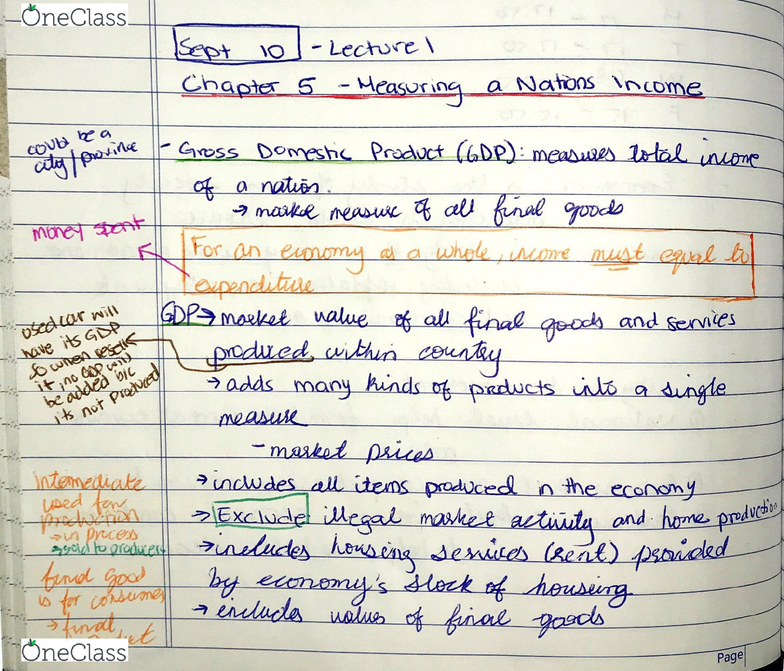 OneClass
Sept 10 - Lecture 1
Chapter 5 - Measuring a Nations Income
could be a
city/province
- Gross Domestic Product (GDP): measures total income
of a nation.
→ market measure of all final goods
money spent
For an economy as a whole, income must equal to
expenditure
GDP → market value of all final goods and services
produced within country
used car will
have its GDP
so when resell
it, no GDP will
be added b/c
its not produced
→ adds many kinds of products into a single
measure
- market prices
→ includes all items produced in the economy
→ Exclude illegal market activity and home production
→ includes housing services (rent) provided
by economy's stock of housing
→ includes values of final goods
intermediate
used for
production
→ in process
→ sold to producers
final good
is for consumer
→ final
Page
OneClass